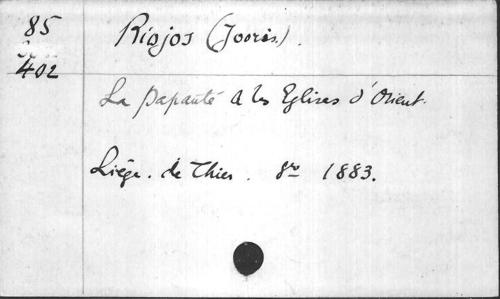 85
402
Riojos (Jooris.).
La papauté & les Eglises d'Orient.
Liége. de Thier. 8vo 1883.